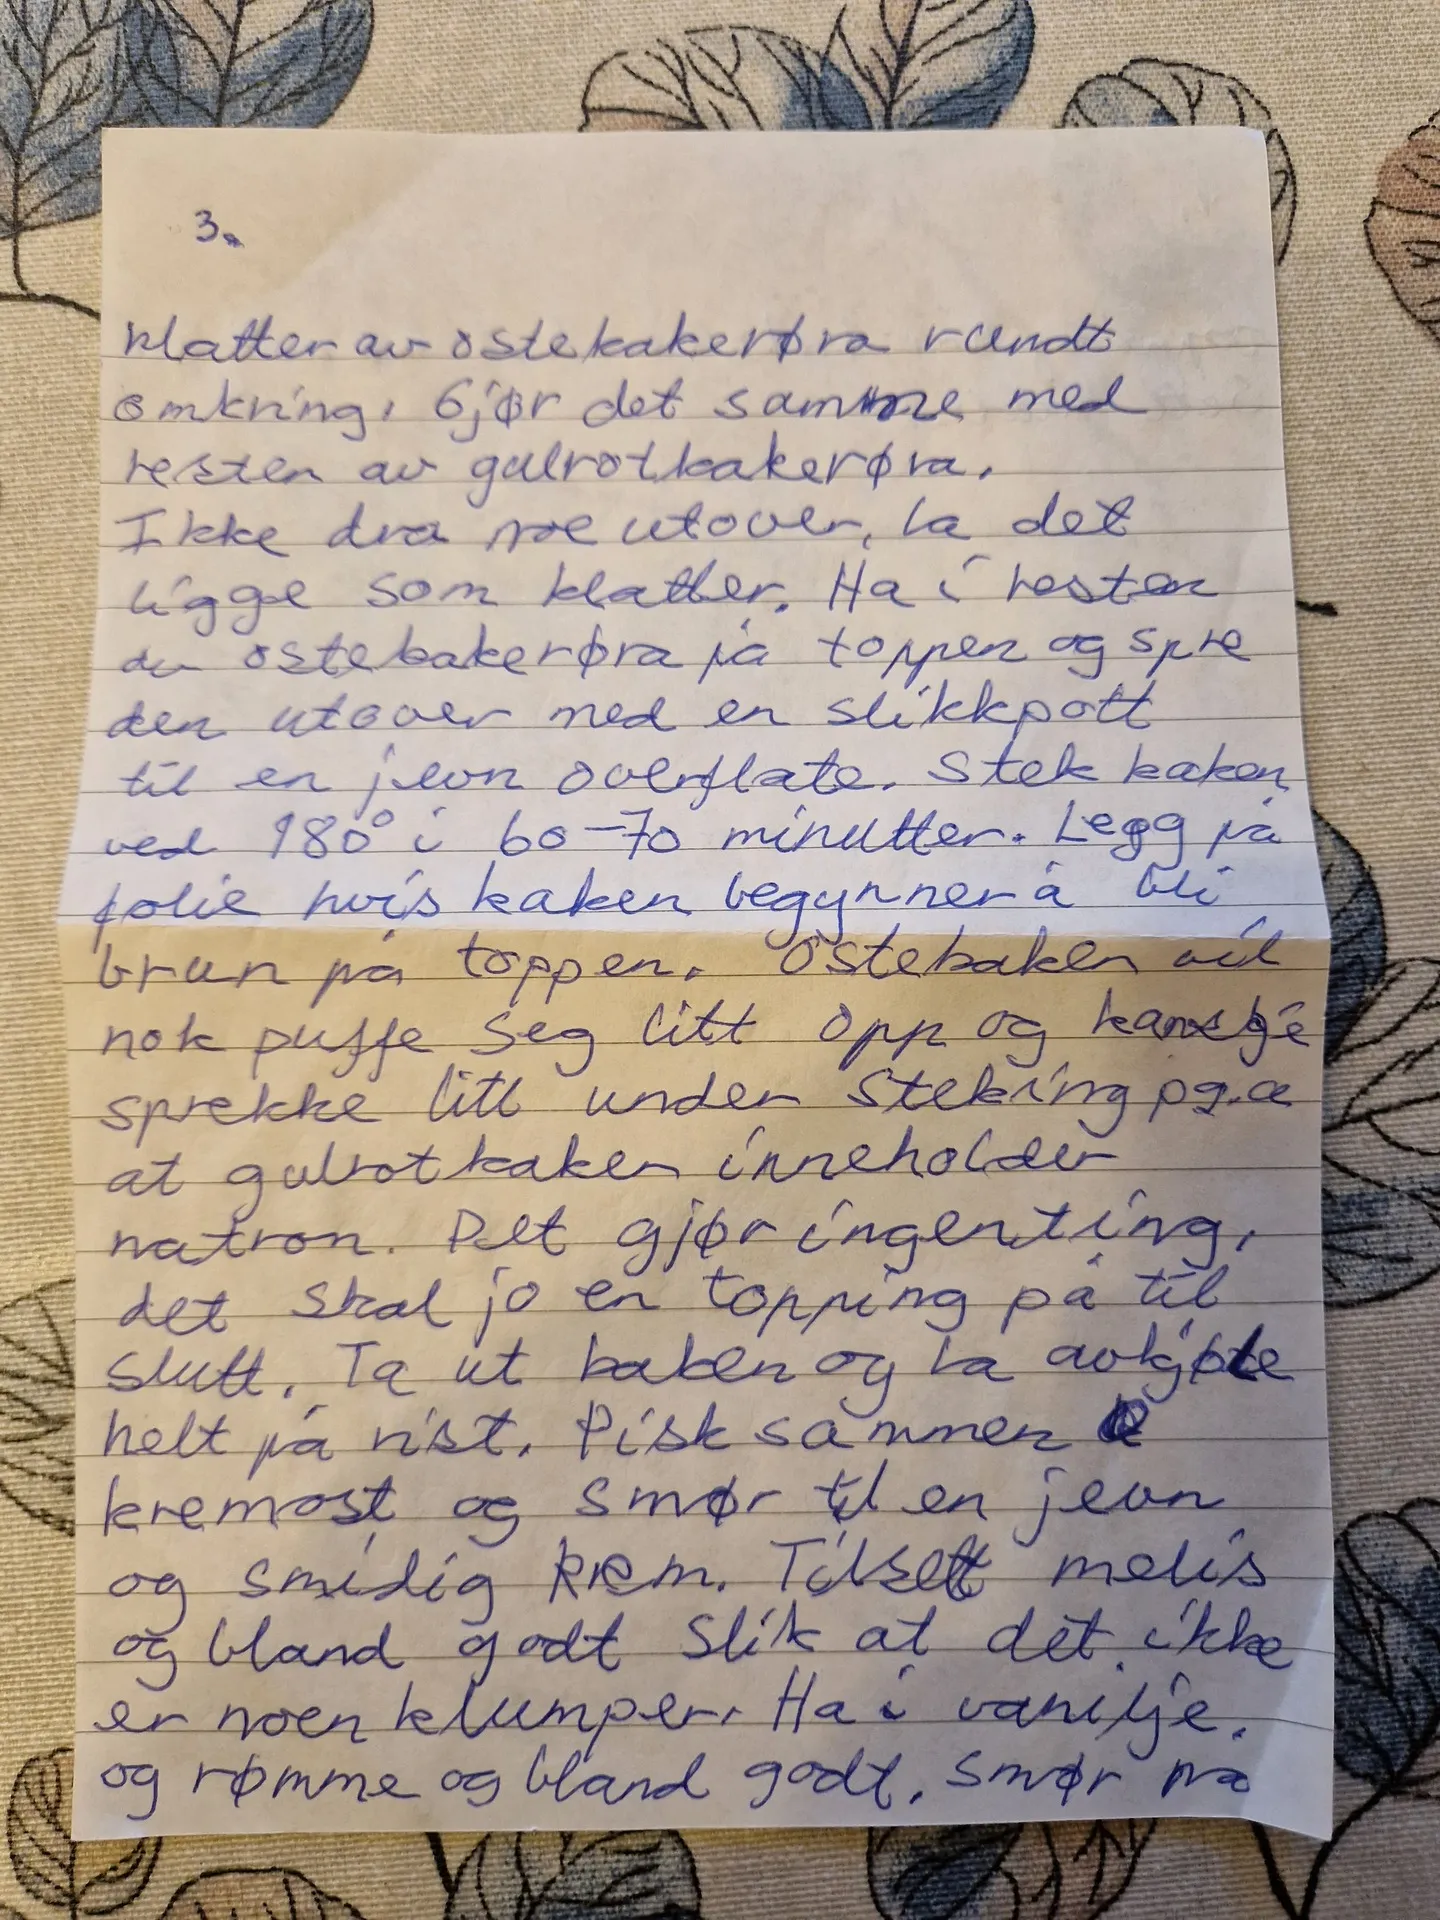 3.
klatter av ostekakerøra rundt
omkring, Gjør det samme med
resten av gulrotkakerøra.
Ikke dra noe utover, la det
ligge som klatter. Ha i resten
av ostekakerøra på toppen og spre
den utover med en slikkpott
til en jevn overflate. Stek kaken
ved 180° i 60-70 minutter. Legg på
folie hvis kaken begynner å bli
brun på toppen. Ostekaken vil
nok puffe seg litt opp og kanskje
sprekke litt under steking pg.a
at gulrotkaken inneholder
natron. Det gjør ingenting,
det skal jo en topping på til
slutt. Ta ut kaken og la avkjøle
helt på rist. Pisk sammen
kremost og smør til en jevn
og smidig krem. Tilsett melis
og bland godt slik at det ikke
er noen klumper. Ha i vanilje.
og rømme og bland godt. Smør på